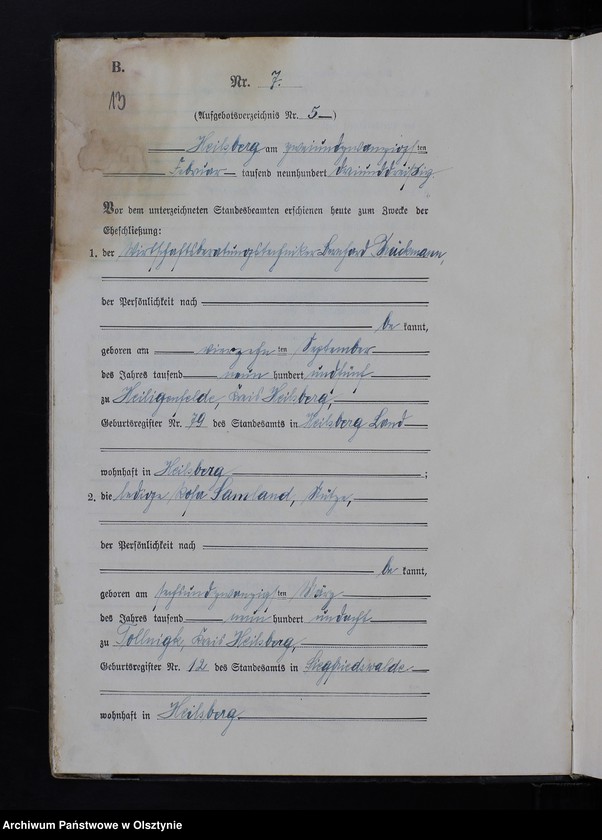 B.
Nr. 7.
13
(Aufgebotsverzeichnis Nr. 5)
Heilsberg am zweiundzwanzigsten
Februar tausend neunhundert dreiunddreißig.
Vor dem unterzeichneten Standesbeamten erschienen heute zum Zwecke der
Eheschließung:
1. der Wirtschaftsberatungstechniker Bernhard
der Persönlichkeit nach
be kannt,
geboren am vierzehnten September
des Jahres tausend neun hundert undfünf
zu Heiligenfelde, Kreis Heilsberg,
Geburtsregister Nr. 79 des Standesamts in Heilsberg Land
wohnhaft in Heilsberg ;
2. die ledige Rosa Samland, Stütze,
der Persönlichkeit nach
be kannt,
geboren am sechsundzwanzigsten März
des Jahres tausend neun hundert undacht
zu Tollnigk, Kreis Heilsberg,
Geburtsregister Nr. 12 des Standesamts in Siegfriedswalde
wohnhaft in Heilsberg
Archiwum Państwowe w Olsztynie